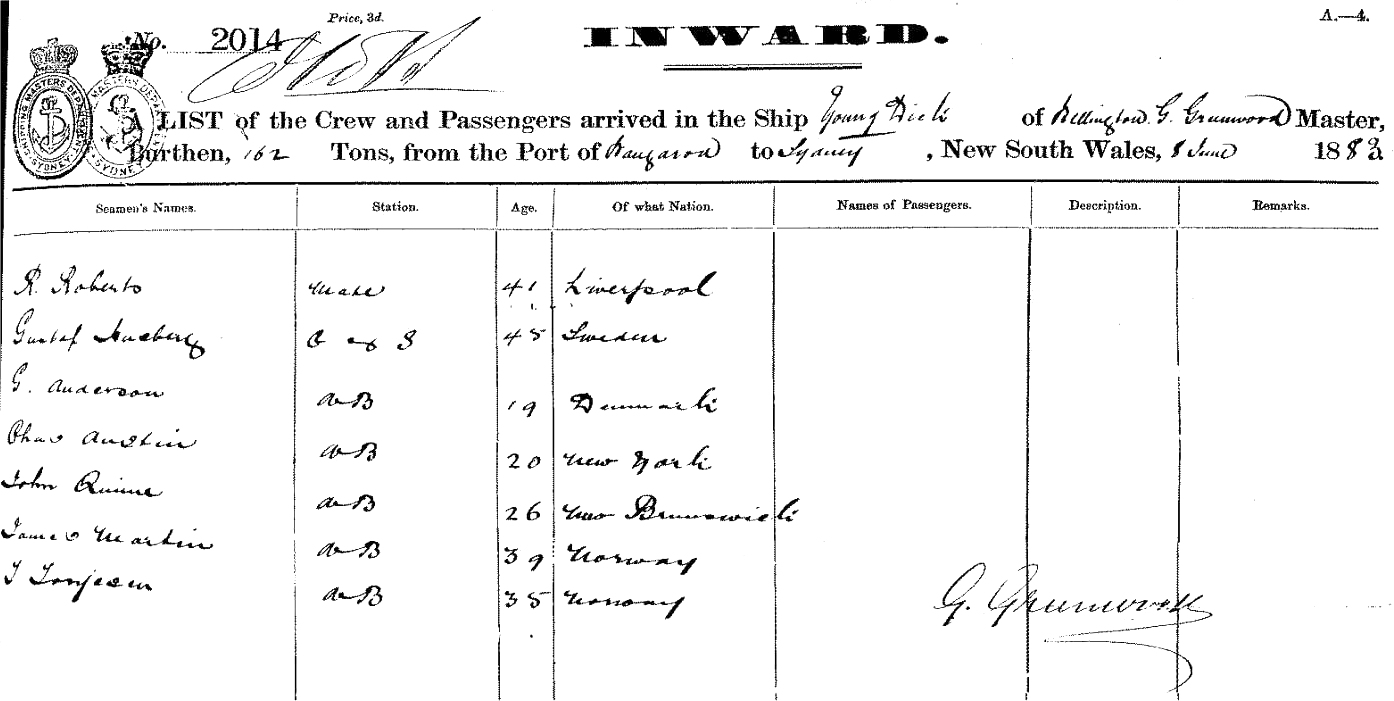 Price, 3d.
A.—4.
No. 2014
INWARD.
A LIST of the Crew and Passengers arrived in the Ship Young Dick of Wellington G. Greenwood Master,
Burthen, 162 Tons, from the Port of to Sydney, New South Wales, 8 June 1883
Seamen's Names. Station. Age. Of what Nation. Names of Passengers. Description. Remarks.
R. Roberts Mate 41 Liverpool
Gustaf C & S 45 Sweden
G. Anderson AB 19 Denmark
Chas Austin AB 20 New York
John Quinne AB 26 New Brunswick
James Martin AB 39 Norway
T AB 35 Norway
G. Greenwood
SHIPPING MASTERS DEPARTMENT SYDNEY